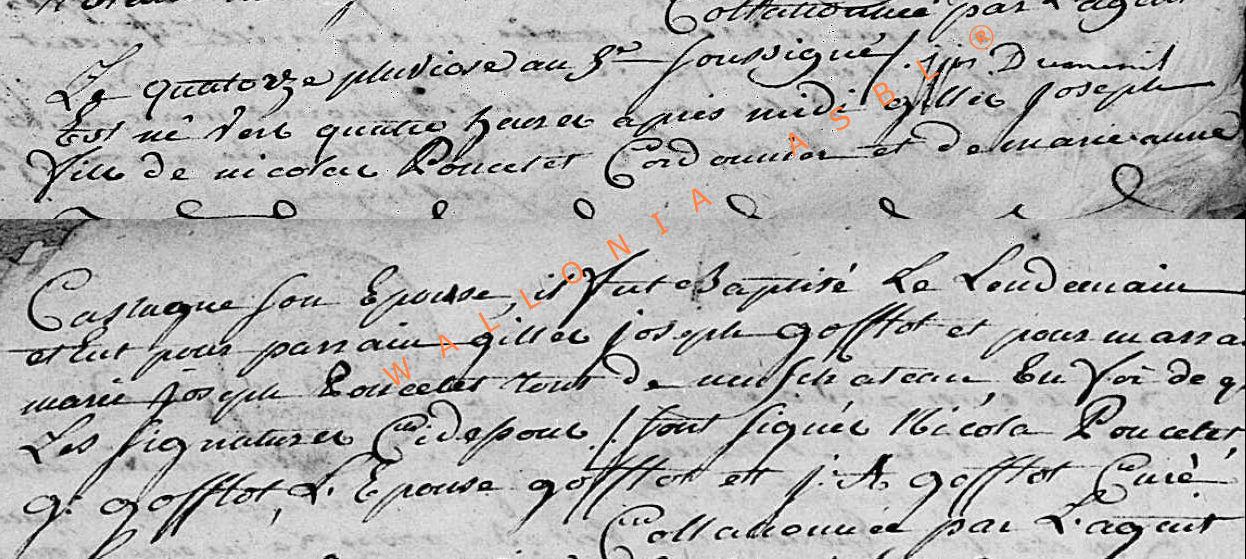 Collationnée par L'agent
Le quatorze pluviose au 5me soussigné /. sign Dumenil
Est né vers quatre heures apres midi gilles Joseph
fils de nicolas Poncelet Cordonnier et de marie anne
Castagne son Epouse, il fut Baptisé Le Lendemain
et Eut pour parrain gilles joseph gofflot et pour marra
marie joseph Poncelet tous de neufchateau En foi de q
Les signatures Cidessous /. sont signés Nicola Poncelet
g: gofflot, L'Epouse gofflot et j: A gofflot Curé
Collationnée par L'agent
WALLONIA ASBL ®